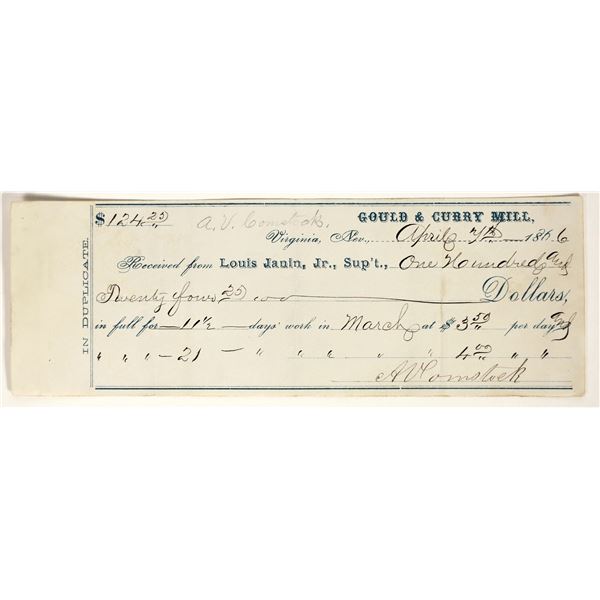 IN DUPLICATE.
$124 25/00 A. V. Comstock. GOULD & CURRY MILL,
Virginia, Nev., April 7th 1866
Received from Louis Janin, Jr., Sup't., One Hundred and
Twenty four 25/00 Dollars,
in full for 11 1/2 days' work in March at $ 3 50/" per day and
" " " 21 " " " " " 4 00/" " "
A V Comstock